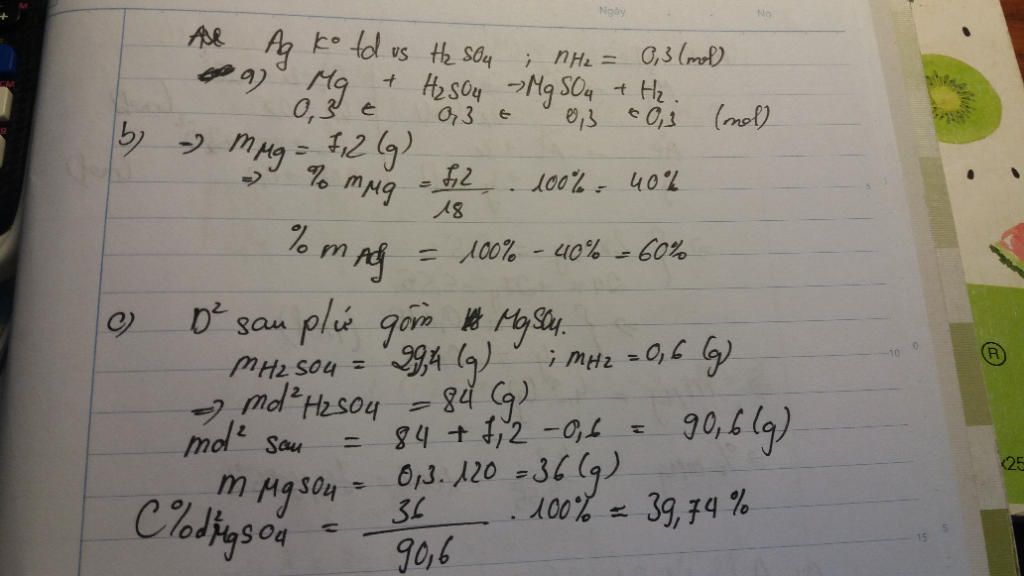 Ngày No.
Ag k° td vs H2SO4 ; nH2 = 0,3 (mol)
a) Mg + H2SO4 → MgSO4 + H2.
0,3 ← 0,3 ← 0,3 ← 0,3 (mol)
b) => mMg = 7,2 (g)
=> % mMg = 7,2/18 . 100% = 40%
% mAg = 100% - 40% = 60%
c) D² sau p/ứ gồm MgSO4.
mH2SO4 = 29,4 (g) ; mH2 = 0,6 (g)
=> md²H2SO4 = 84 (g)
md² sau = 84 + 7,2 - 0,6 = 90,6 (g)
mMgSO4 = 0,3. 120 = 36 (g)
C%d²MgSO4 = 36/90,6 . 100% = 39,74%
5
10
15
R